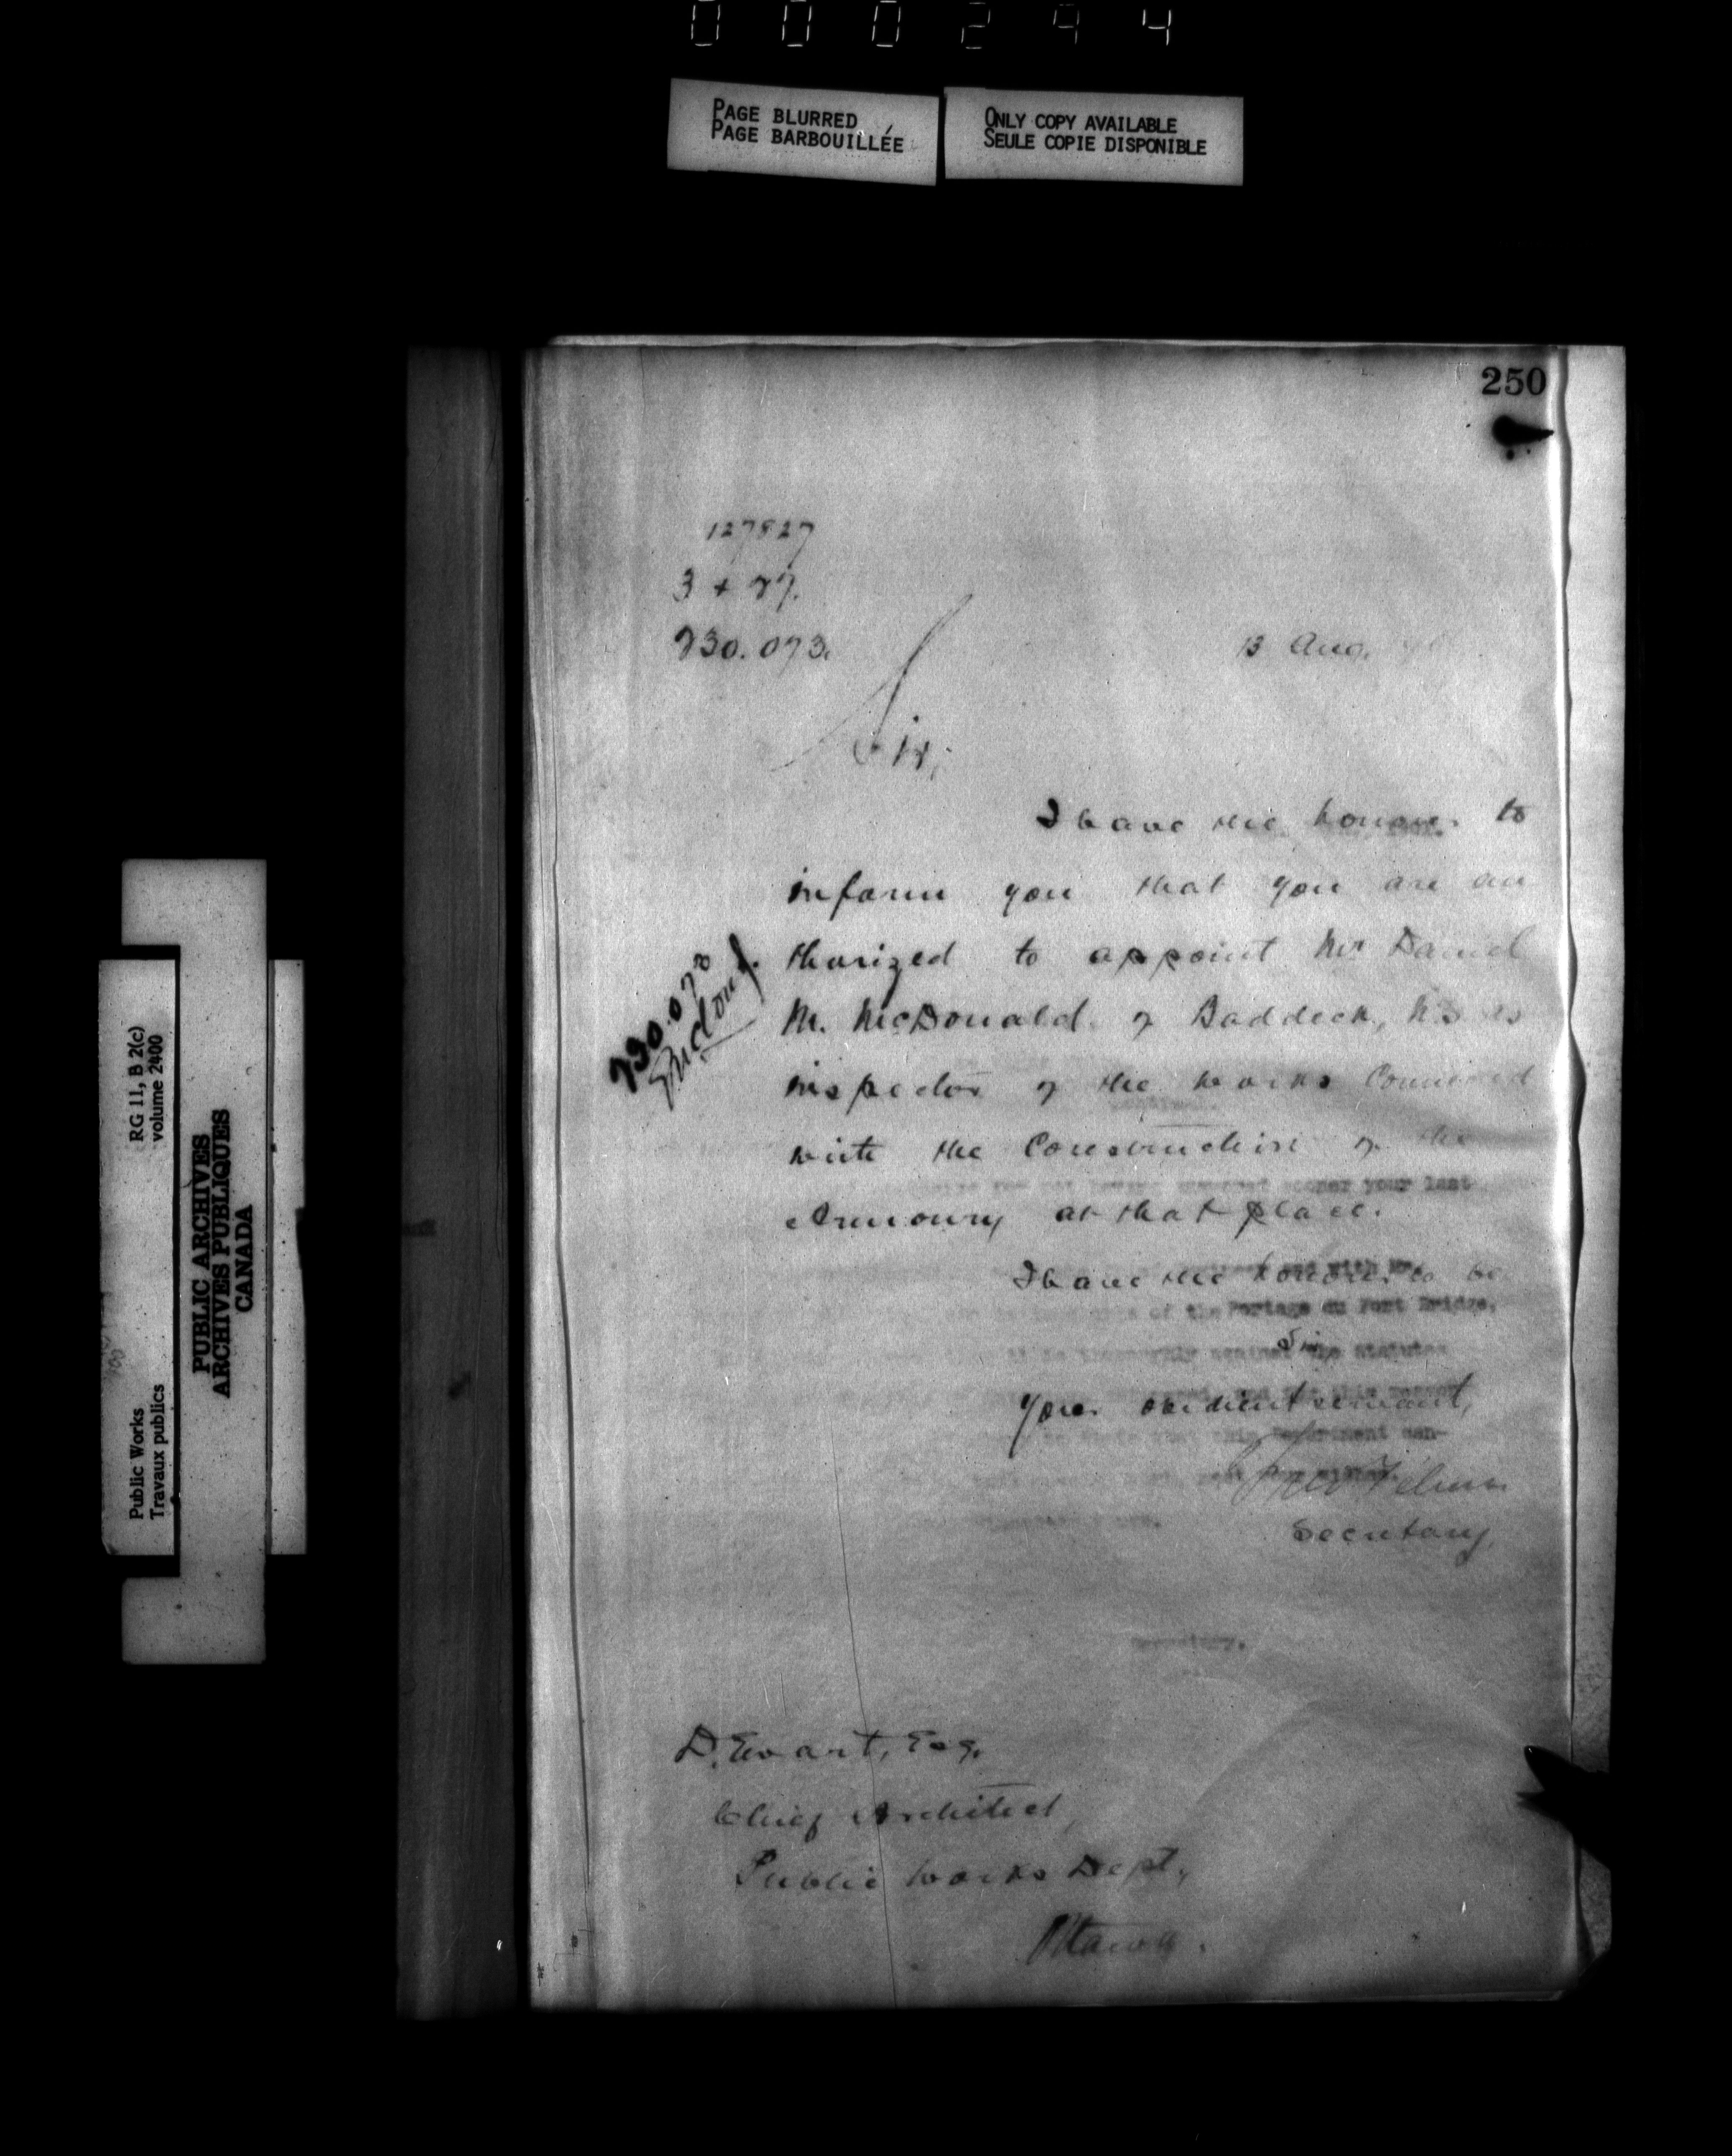 000294
PAGE BLURRED
PAGE BARBOUILLÉE
ONLY COPY AVAILABLE
SEULE COPIE DISPONIBLE
RG 11, B 2(c)
volume 2400
PUBLIC ARCHIVES
ARCHIVES PUBLIQUES
CANADA
Public Works
Travaux publics
250
127827
3 + 27.
230.073.
13 Aug.
Sir,
I have the honour to
inform you that you are au
thorized to appoint Mr Daniel
M. McDonald of Baddeck, N.S. as
inspector of the works connected
with the Construction of the
Armoury at that place.
I have the honour to be
Sir
Your obedient servant,
Secretary
230.073
D. Ewart, Esq.
Chief Architect,
Public Works Dept,
Ottawa.
your last
and with Mr.
of the Portage du Fort Bridge,
against the statutes